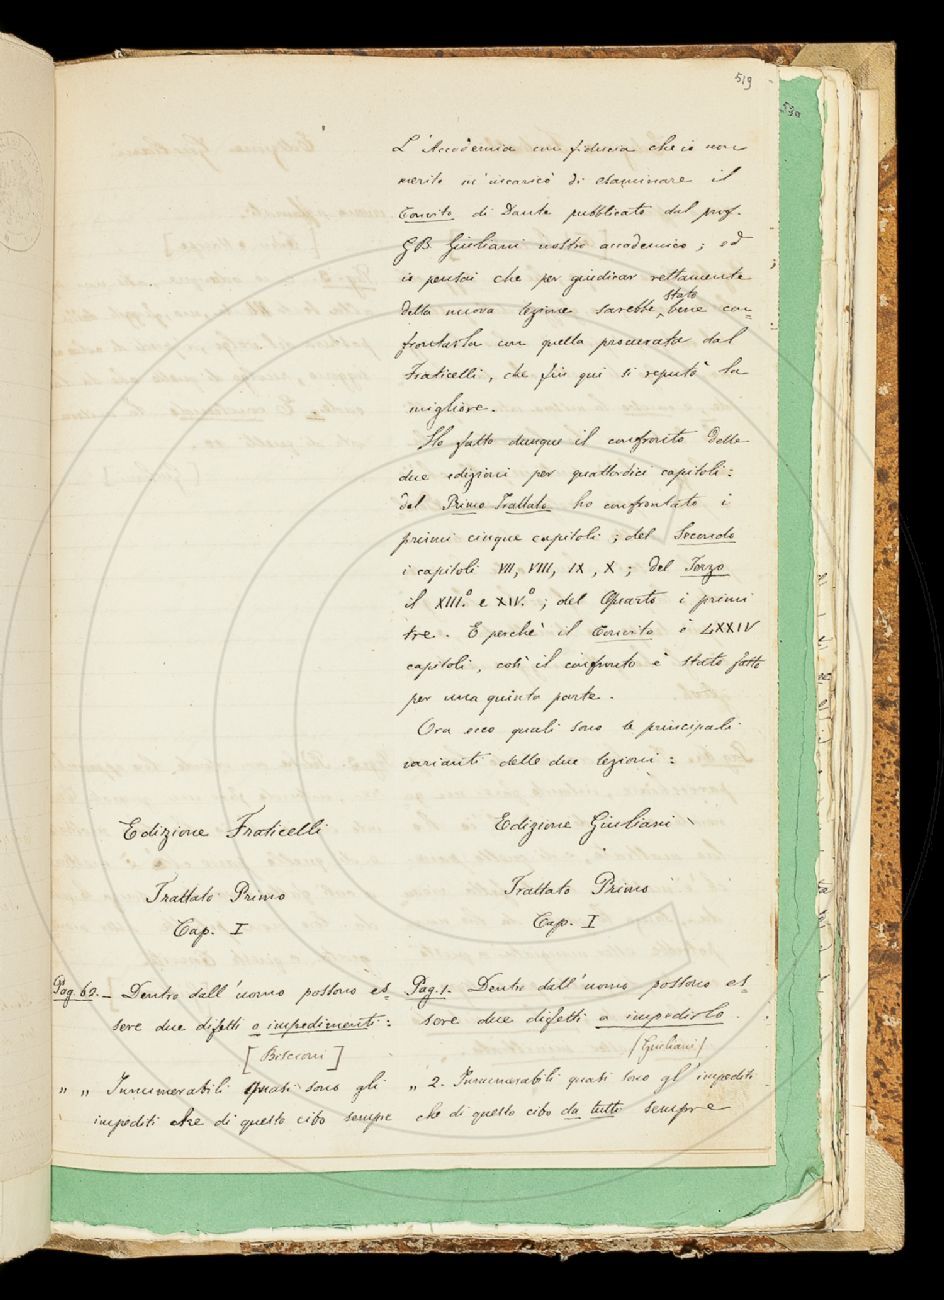 519
530
L'Accademia con fiducia che io non
merito m'incaricò di esaminare il
Convito di Dante pubblicato dal prof.
GB. Giuliani nostro accademico; ed
io pensai che per giudicar rettamente
della nuova lezione sarebbe stato bene con=
frontarla con quella procurata dal
Fraticelli, che fin qui si reputò la
migliore.
Ho fatto dunque il confronto delle
due edizioni per quattordici capitoli:
del Primo Trattato ho confrontato i
primi cinque capitoli; del Secondo
i capitoli VII, VIII, IX, X; del Terzo
il XIII.º e XIV.º; del Quarto i primi
tre. E perchè il Convito è LXXIV
capitoli, così il confronto è stato fatto
per una quinta parte.
Ora ecco quali sono le principali
varianti delle due lezioni:
Edizione Fraticelli
Trattato Primo
Cap. I
Pag. 62. - Dentro dall'uomo possono es=
sere due difetti o impedimenti:
[Biscioni]
" " Innumerabili quasi sono gli
impediti che di questo cibo sempre
Edizione Giuliani
Trattato Primo
Cap. I
Pag. 1. Dentro dall'uomo possono es=
sere due difetti a impedirlo.
(Giuliani)
" 2. Innumerabili quasi sono gl'impediti
che di questo cibo da tutti sempre